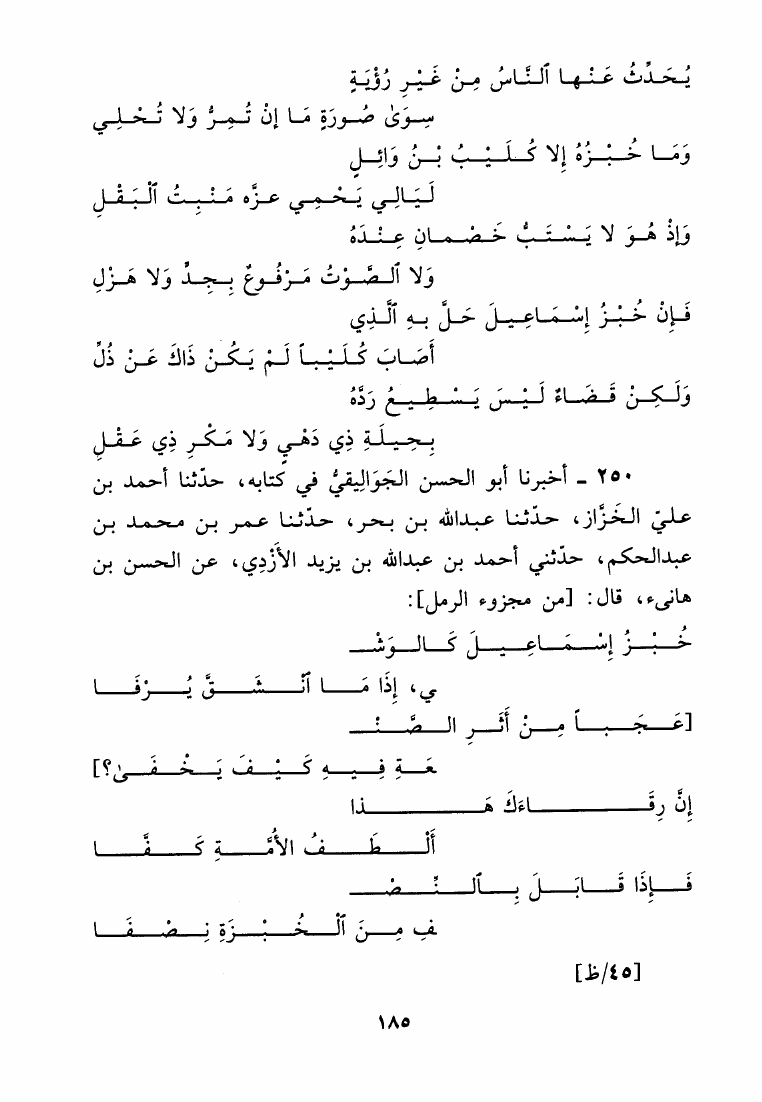 يُحَدِّثُ عَنْها ٱلنَّاسُ مِنْ غَيْرِ رُؤْيَةٍ
سِوَىٰ صُورَةٍ مَا إِنْ تُمِرُّ وَلا تُحْلِي
وَمَا خُبْزُهُ إِلا كُلَيْبُ بْنُ وَائِلٍ
لَيَالِي يَحْمِي عِزُّه مَنْبِتُ ٱلْبَقْلِ
وَإِذْ هُوَ لا يَسْتَبُّ خَصْمانِ عِنْدَهُ
وَلا ٱلصَّوْتُ مَرْفُوعٌ بِجِدٍّ وَلا هَزْلِ
فَإِنْ خُبْزُ إِسْمَاعِيلَ حَلَّ بِهِ ٱلَّذِي
أَصَابَ كُلَيْباً لَمْ يَكُنْ ذَاكَ عَنْ ذُلِّ
وَلَكِنْ قَضَاءً لَيْسَ يَسْطِيعُ رَدَّهُ
بِحِيلَةِ ذِي دَهْيٍ وَلا مَكْرِ ذِي عَقْلِ
٢٥٠ - أخبرنا أبو الحسن الجَوَالِيقيُّ في كتابه، حدّثنا أحمد بن
عليّ الخَزَّاز، حدّثنا عبدالله بن بحر، حدّثنا عمر بن محمد بن
عبدالحكم، حدّثني أحمد بن عبدالله بن يزيد الأزْدِي، عن الحسن بن
هانىء، قال: [من مجزوء الرمل]:
خُبْزُ إِسْمَاعِيلَ كَالوَشْـ
ـيِ، إِذَا مَا ٱنْشَقَّ يُرْفَا
[عَجَباً مِنْ أَثَرِ الصَّنْـ
ـعَةِ فِيهِ كَيْفَ يَخْفَىٰ؟]
إِنَّ رِقَاءَكَ هَذا
أَلْطَفُ الأُمَّةِ كَفَّا
فَإِذَا قَابَلَ بِٱلنِّصْـ
ـفِ مِنَ ٱلْخُبْزَةِ نِصْفَا
[٤٥/ظ]
١٨٥